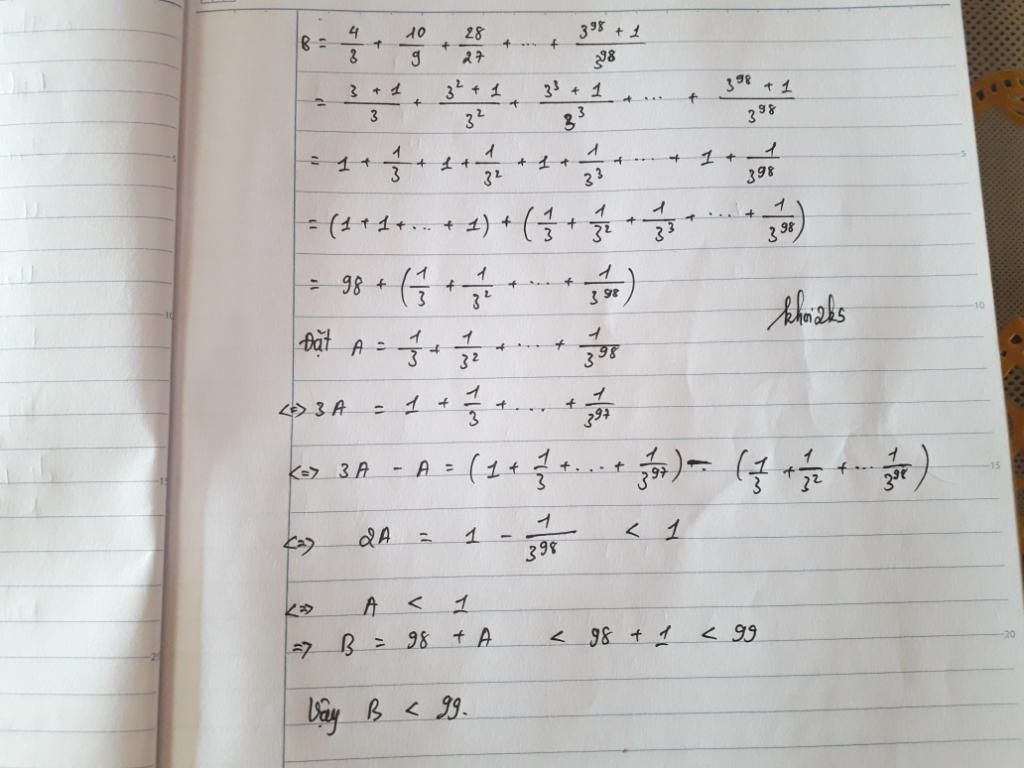 B = 4/3 + 10/9 + 28/27 + ... + (3^98 + 1)/3^98
= (3 + 1)/3 + (3^2 + 1)/3^2 + (3^3 + 1)/3^3 + ... + (3^98 + 1)/3^98
= 1 + 1/3 + 1 + 1/3^2 + 1 + 1/3^3 + ... + 1 + 1/3^98
= (1 + 1 + ... + 1) + (1/3 + 1/3^2 + 1/3^3 + ... + 1/3^98)
= 98 + (1/3 + 1/3^2 + ... + 1/3^98)
khoi2k5
Đặt A = 1/3 + 1/3^2 + ... + 1/3^98
<=> 3A = 1 + 1/3 + ... + 1/3^97
<=> 3A - A = (1 + 1/3 + ... + 1/3^97) - (1/3 + 1/3^2 + ... 1/3^98)
<=> 2A = 1 - 1/3^98 < 1
<=> A < 1
=> B = 98 + A < 98 + 1 < 99
Vậy B < 99.